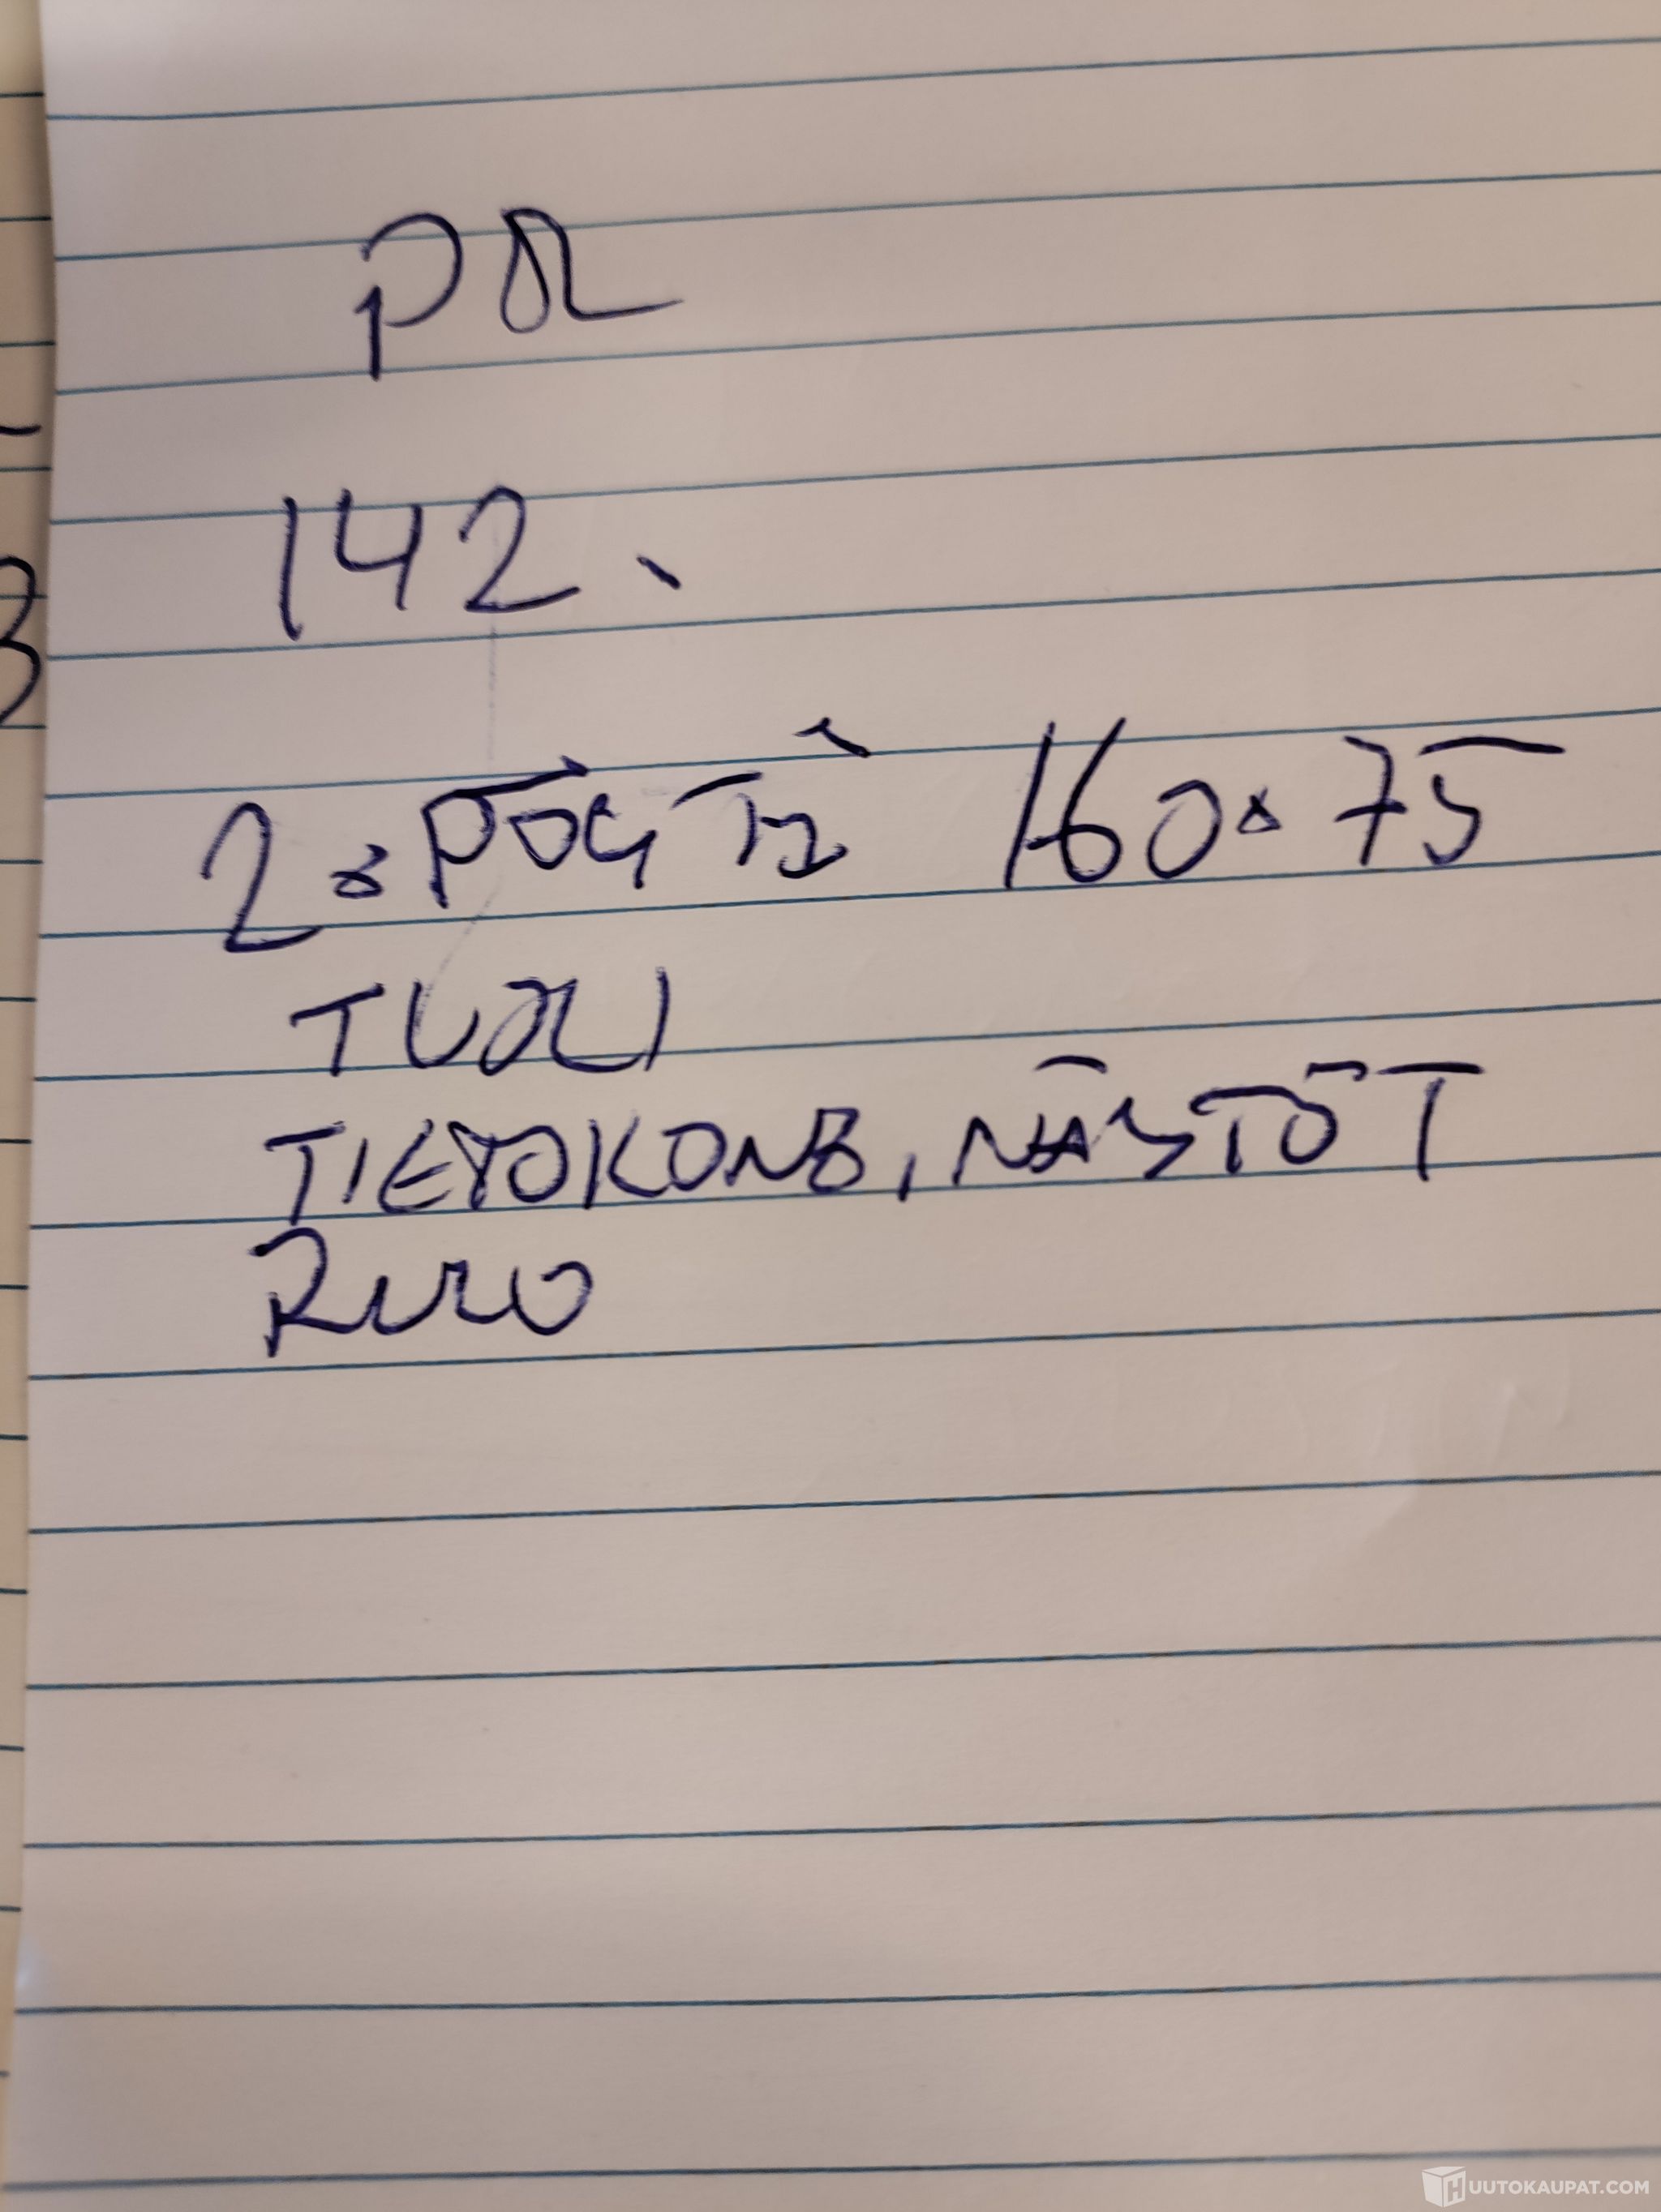 142.
2 x PÖYTÄ 160x75
TUOLI
TIETOKONE, NÄYTÖT
HUUTOKAUPAT.COM